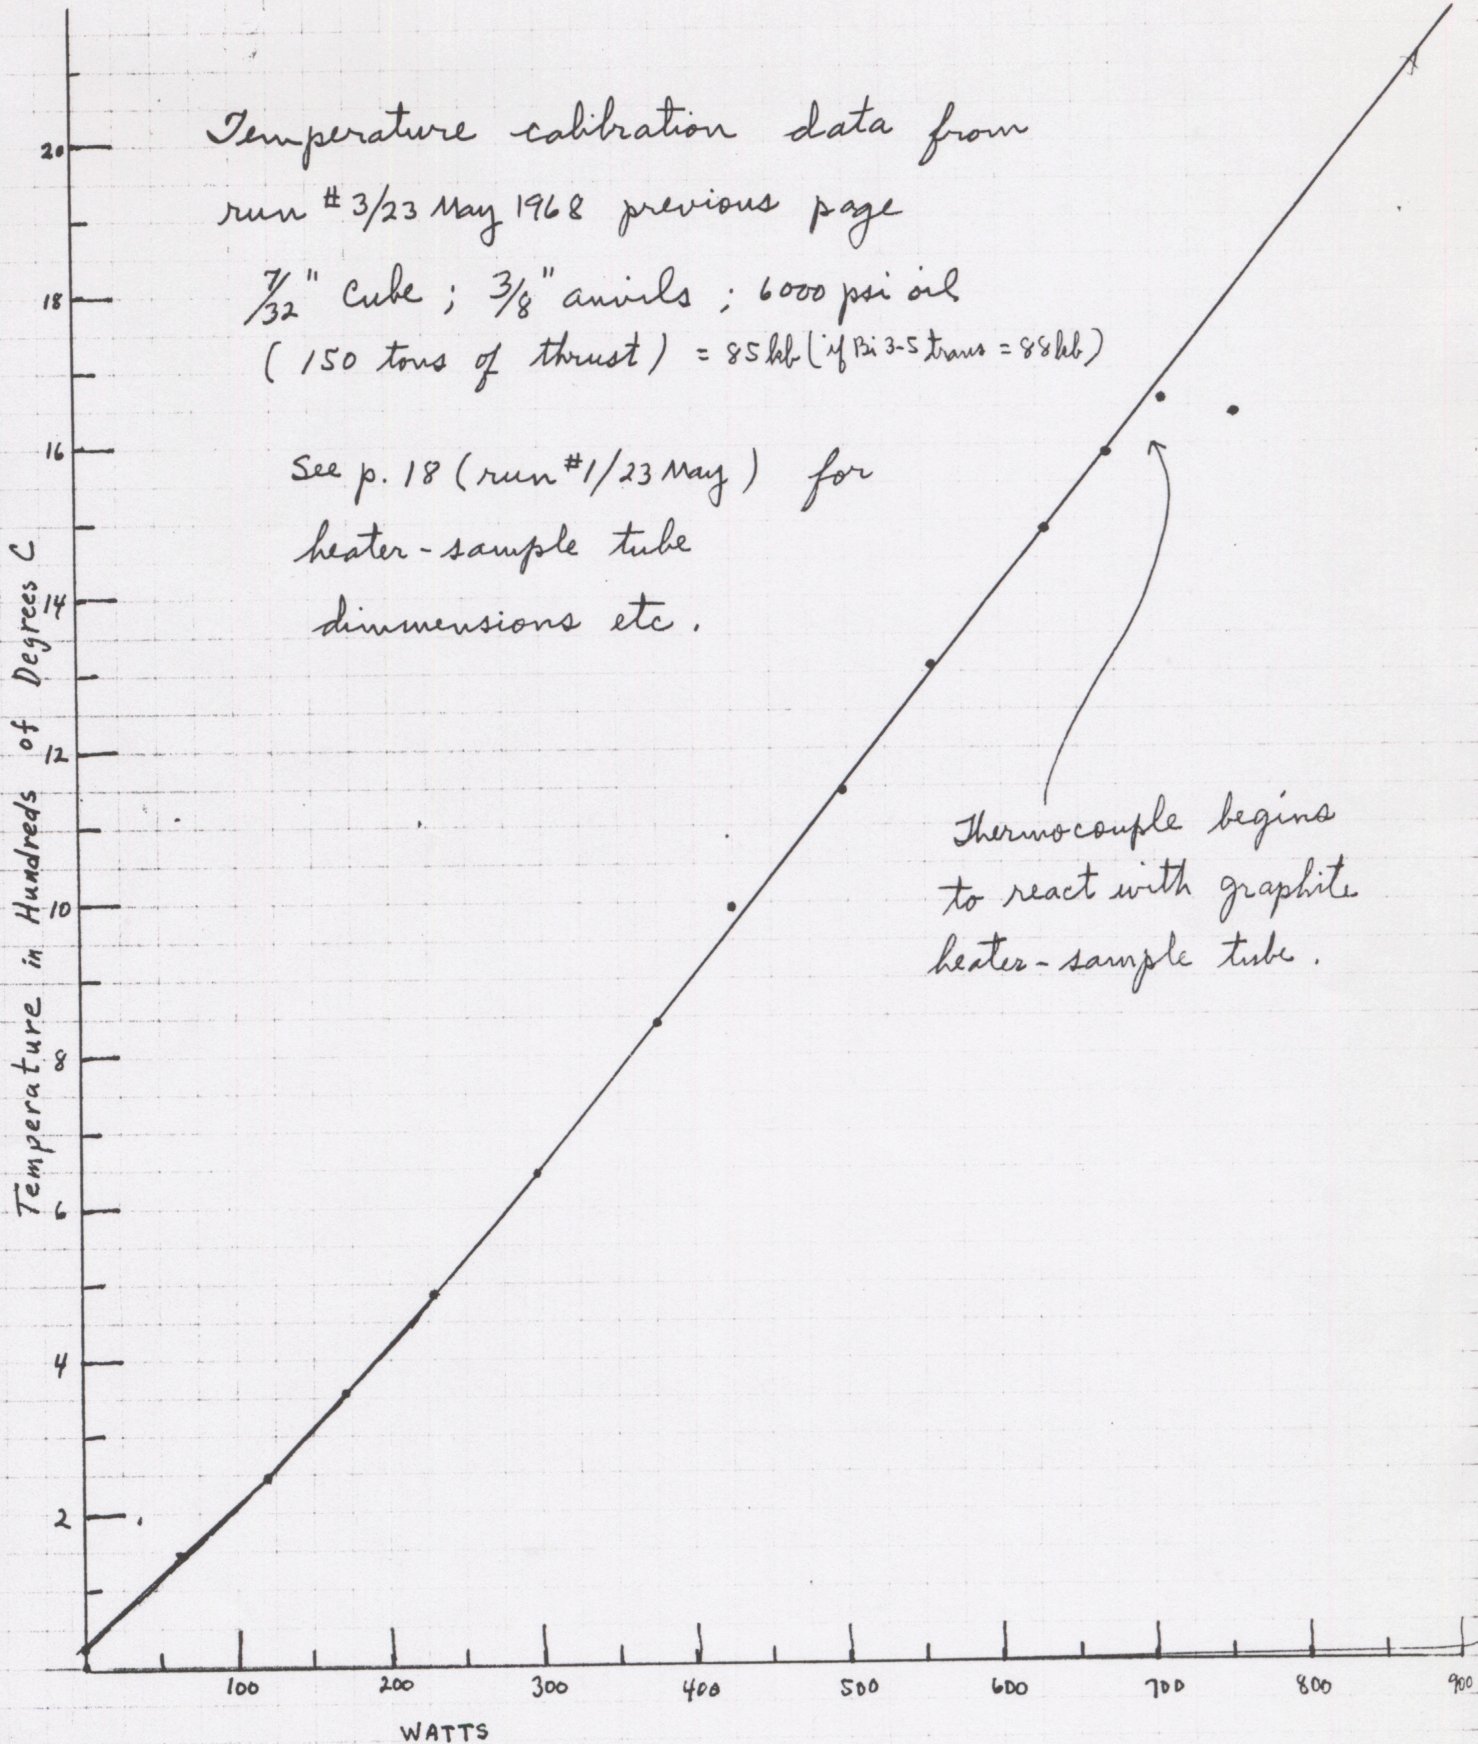 Temperature calibration data from
run # 3/23 May 1968 previous page
7/32" cube ; 3/8" anvils ; 6000 psi oil
( 150 tons of thrust ) = 85 kb ( if Bi 3-5 trans = 88 kb )
See p. 18 ( run #1/23 May ) for
heater - sample tube
dimmensions etc .
Thermocouple begins
to react with graphite
heater - sample tube .
Temperature in Hundreds of Degrees C
20
18
16
14
12
10
8
6
4
2
100 200 300 400 500 600 700 800 900
WATTS